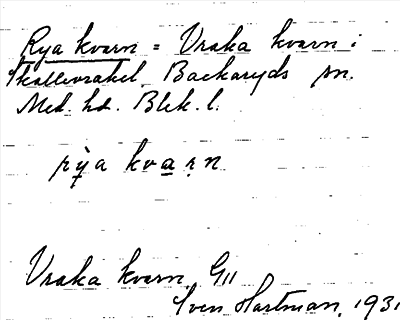 Rya kvarn = Vraka kvarn i
Skallevrakel, Backaryds sn.
Med. hd. Blek. l.
rỳa kvaṛn
Vraka kvarn G11
Sven Hartman, 1931